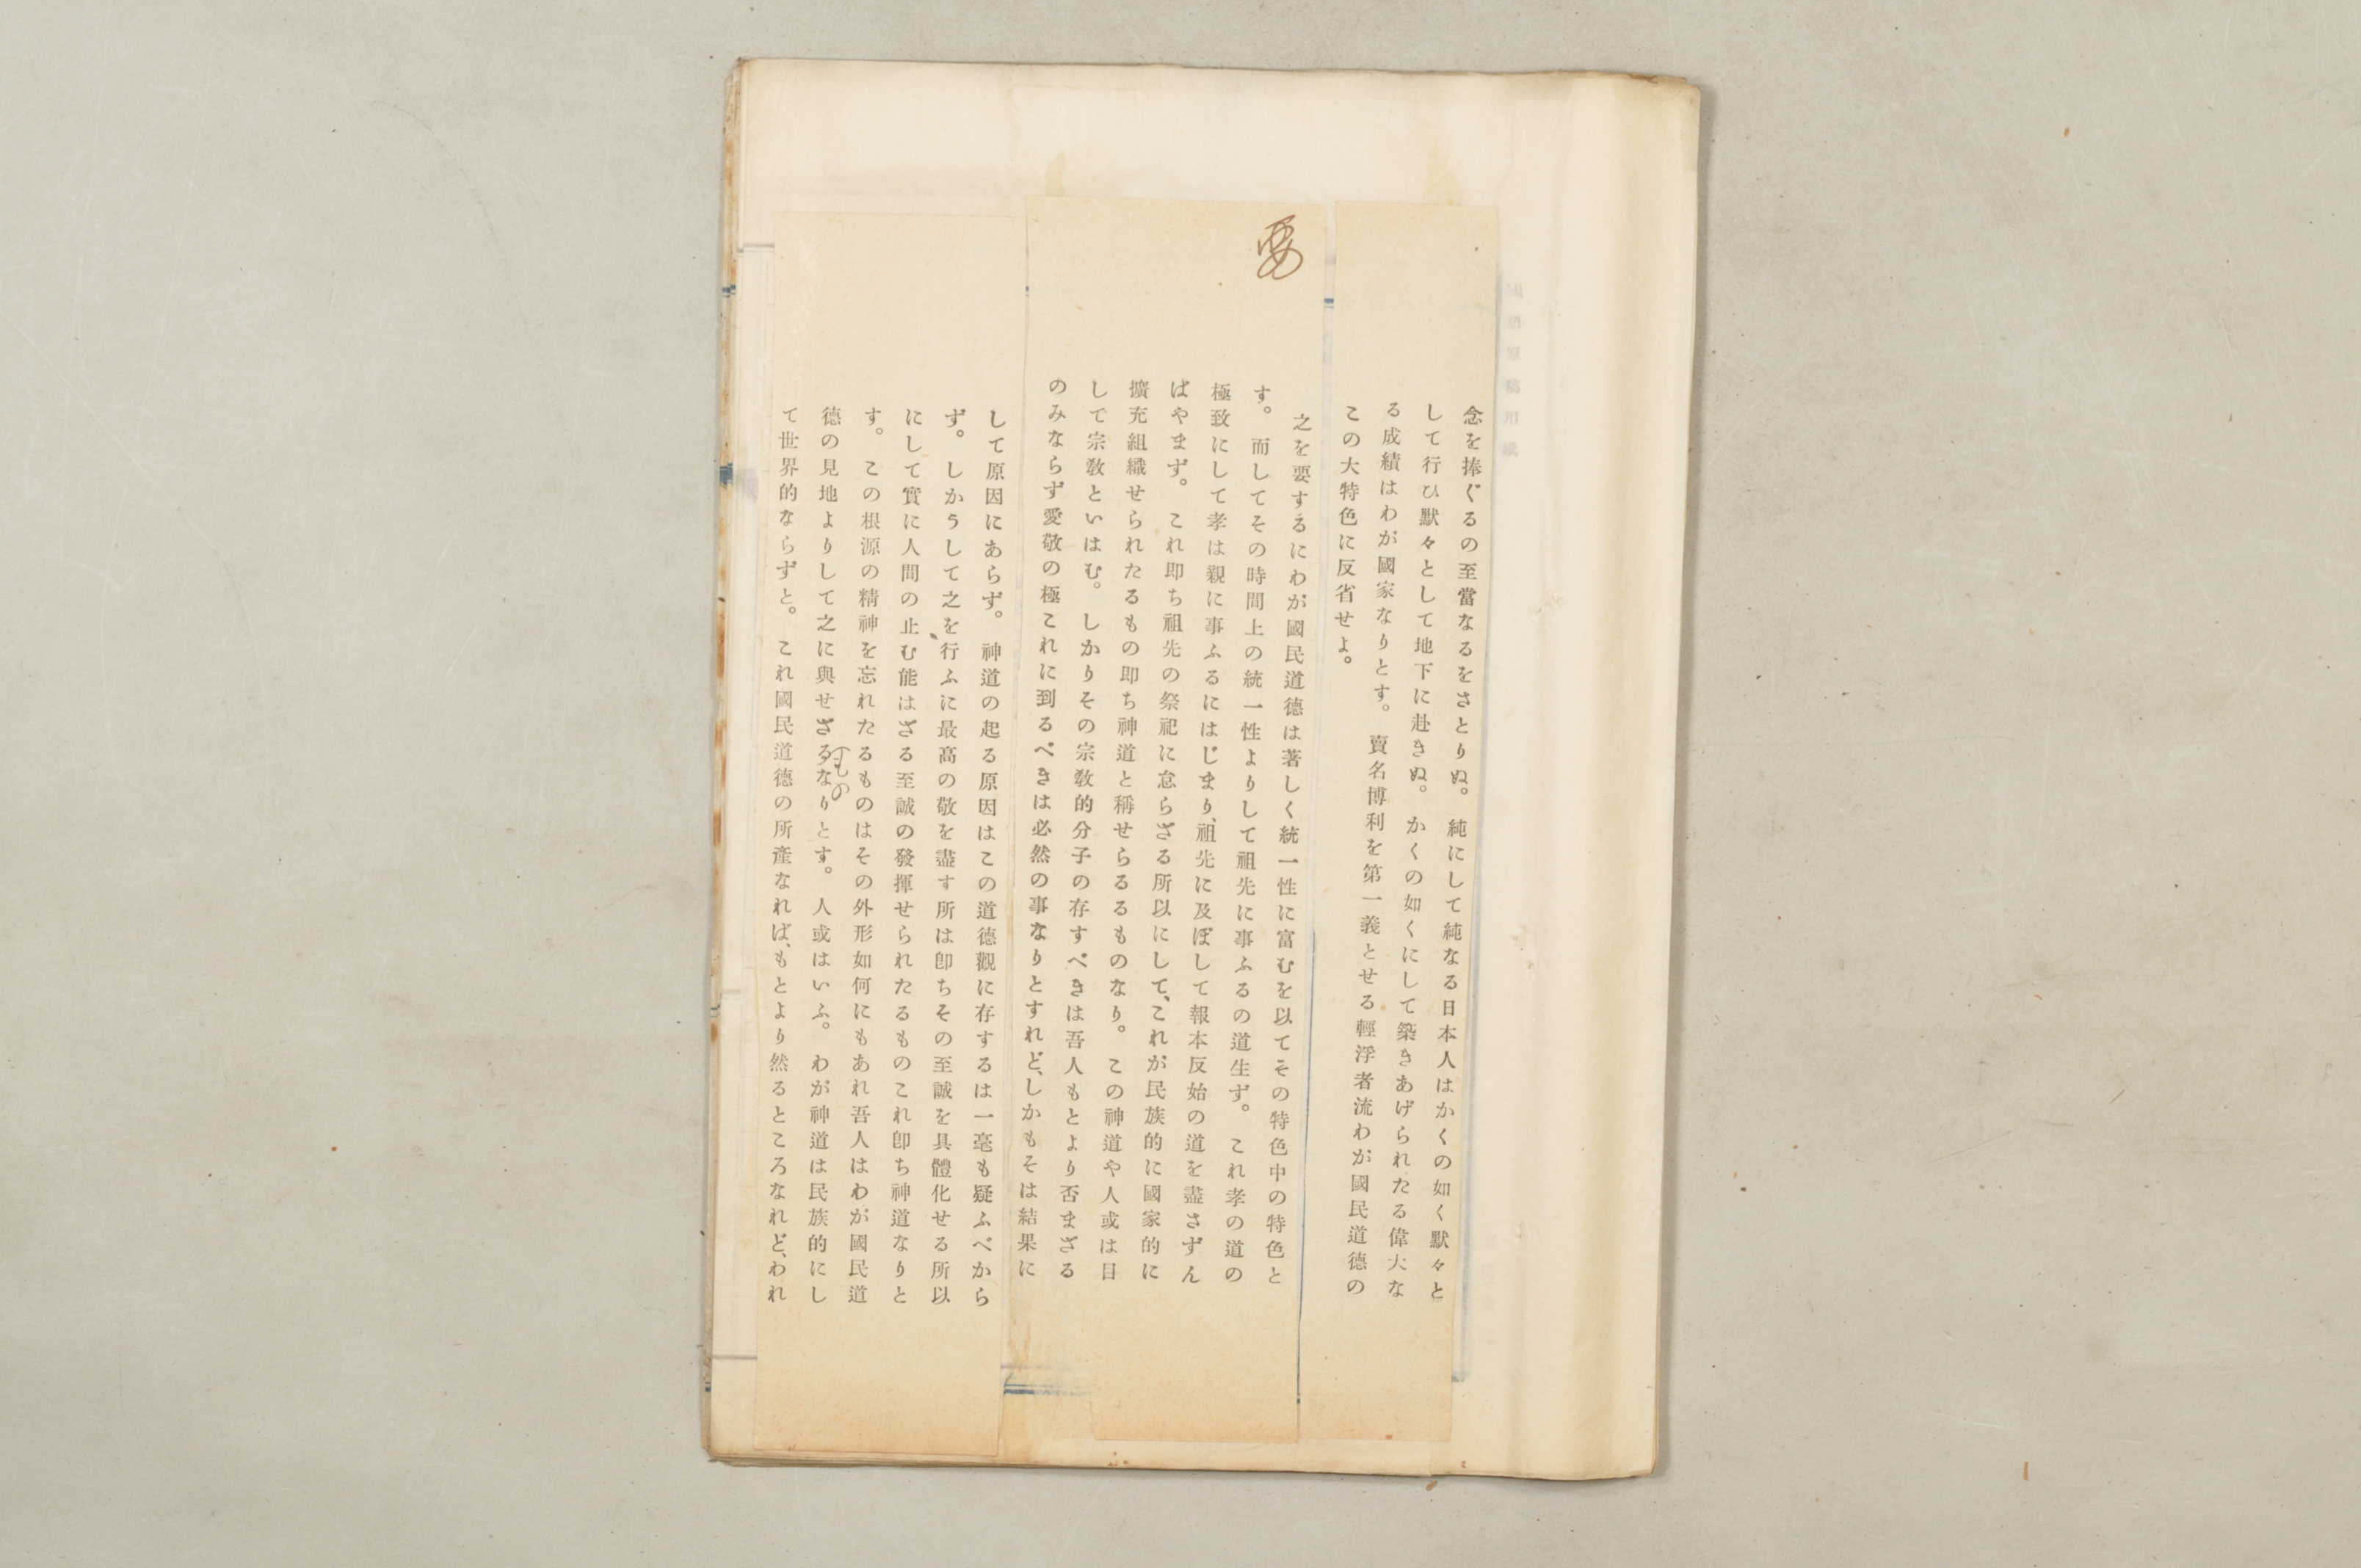 念を捧ぐるの至當なるをさとりぬ。純にして純なる日本人はかくの如く默々と
して行ひ默々として地下に赴きぬ。かくの如くにして築きあげられたる偉大な
る成績はわが國家なりとす。賣名博利を第一義とせる輕浮者流わが國民道德の
この大特色に反省せよ。
要
之を要するにわが國民道德は著しく統一性に富むを以てその特色中の特色と
す。而してその時間上の統一性よりして祖先に事ふるの道生ず。これ孝の道の
極致にして孝は親に事ふるにはじまり、祖先に及ぼして報本反始の道を盡さずん
ばやまず。これ即ち祖先の祭祀に怠らざる所以にして、これが民族的に國家的に
擴充組織せられたるもの即ち神道と稱せらるるものなり。この神道や人或は目
して宗敎といはむ。しかりその宗敎的分子の存すべきは吾人もとより否まざる
のみならず愛敬の極これに到るべきは必然の事なりとすれど、しかもそは結果に
して原因にあらず。神道の起る原因はこの道德觀に存するは一毫も疑ふべから
ず。しかうして之を行ふに最高の敬を盡す所は卽ちその至誠を具體化せる所以
にして實に人間の止む能はざる至誠の發揮せられたるものこれ卽ち神道なりと
す。この根源の精神を忘れたるものはその外形如何にもあれ吾人はわが國民道
德の見地よりして之に與せざるなりとす。人或はいふ。わが神道は民族的にし
もの
て世界的ならずと。これ國民道德の所產なれば、もとより然るところなれど、われ